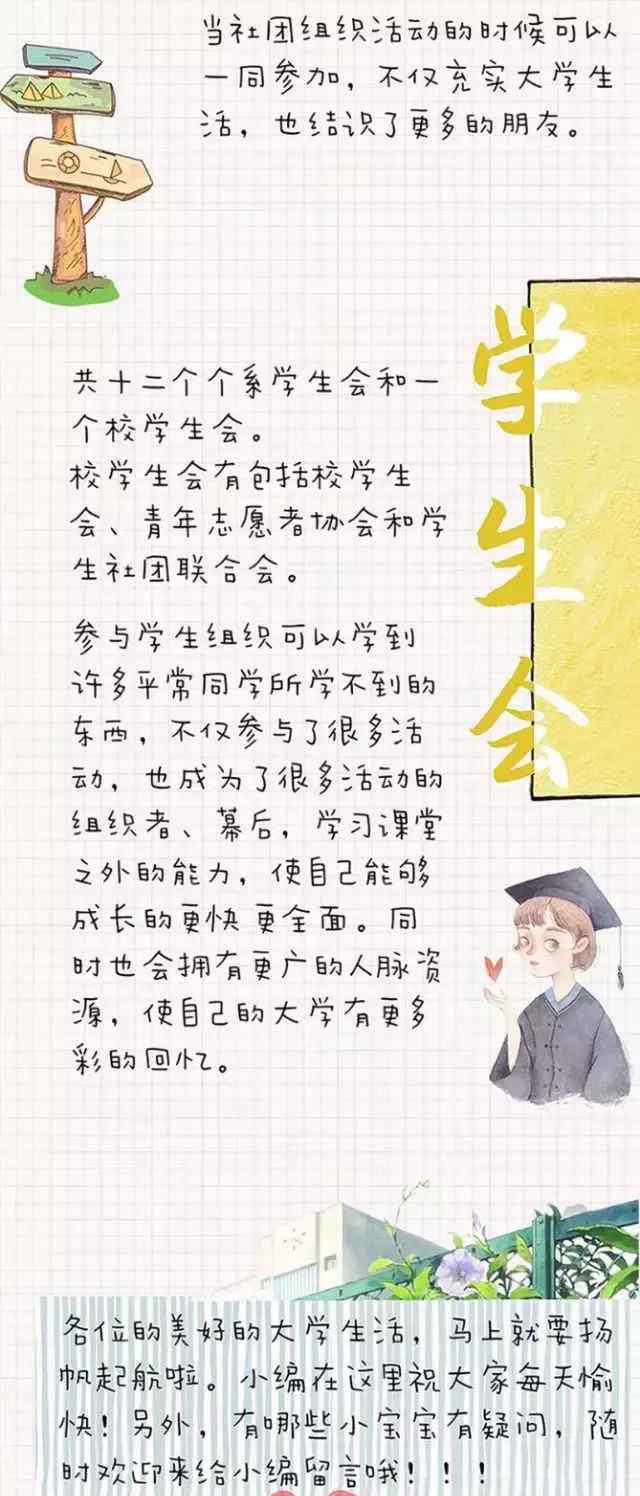 当社团组织活动的时候可以
一同参加，不仅充实大学生
活，也结识了更多的朋友。
学生会
共十二个个系学生会和一
个校学生会。
校学生会有包括校学生
会、青年志愿者协会和学
生社团联合会。
参与学生组织可以学到
许多平常同学所学不到的
东西，不仅参与了很多活
动，也成为了很多活动的
组织者、幕后，学习课堂
之外的能力，使自己能够
成长的更快更全面。同
时也会拥有更广的人脉资
源，使自己的大学有更多
彩的回忆。
各位的美好的大学生活，马上就要扬
帆起航啦。小编在这里祝大家每天愉
快！另外，有哪些小宝宝有疑问，随
时欢迎来给小编留言哦！！！